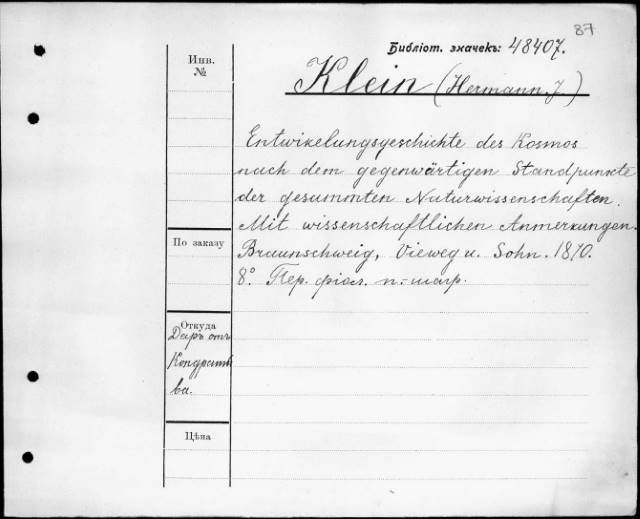 87
Библіот. значекъ: 48407.
Klein (Hermann. J.)
Инв.
№
Entwikelungsgeschichte des Kosmos
nach dem gegenwärtigen Standpunkte
der gesammten Naturwissenschaften.
Mit wissenschaftlichen Anmerkungen.
Braunschweig, Vieweg u. Sohn. 1870.
8º. Пер. фіол. п.-шагр.
По заказу
Откуда
Даръ отъ
Кондратье
ва.
Цѣна